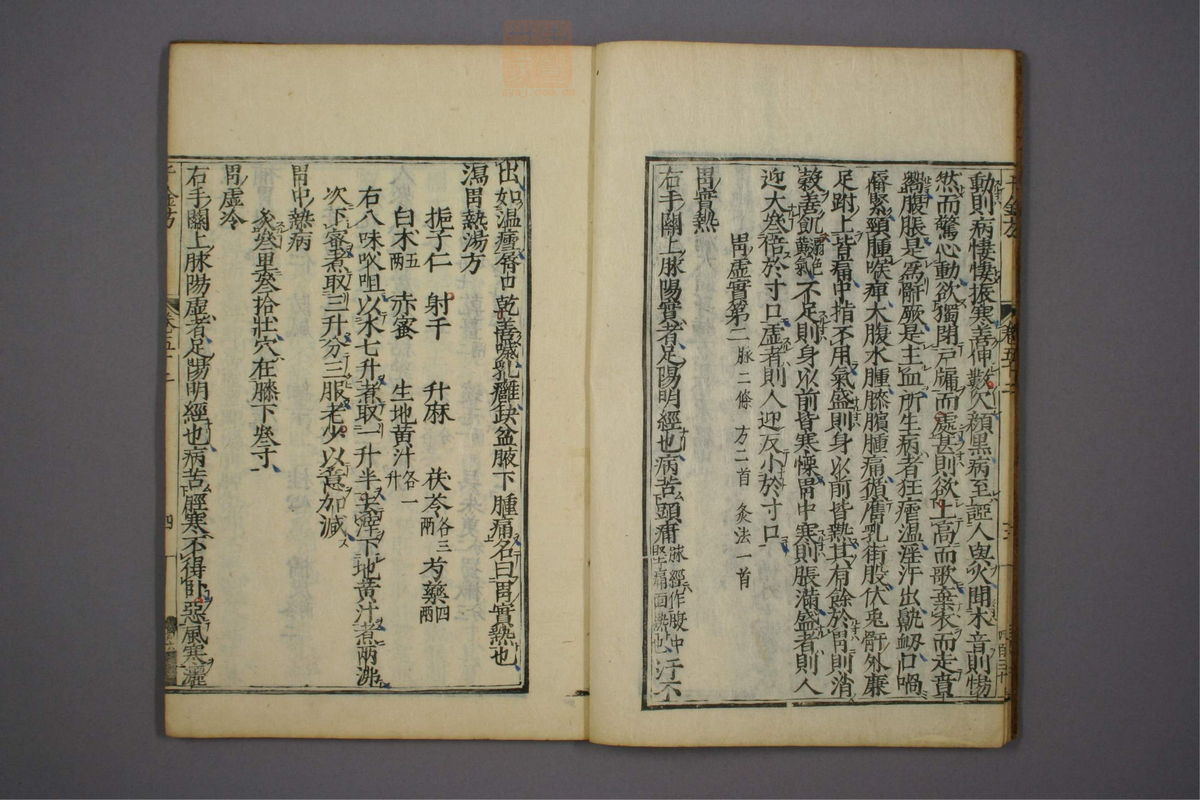 動則病悽悽振寒善伸數欠顏黑病至惡人與火聞木音則惕
然而驚心動欲獨閉戶牖而處甚則欲上高而歌棄衣而走賁
響腹脹是為骭厥是主血所生病者狂瘧溫淫汗出鼽衂口喎
脣緊頸腫喉痺大腹水腫膝臏腫痛循膺乳街股伏兎骭外廉
足跗上皆痛中指不用氣盛則身以前皆熱其有餘於胃則消
穀善飢氣不足則身以前皆寒慄胃中寒則脹滿盛者則人
迎大叄倍於寸口虛者則人迎反小於寸口
胃虛實第二 脉二條 方二首 灸法一首
胃實熱
右手關上脉陽實者足陽明經也病苦頭痛 脉經作腹中堅痛面熱也 汗不
出如溫瘧脣口乾善噦乳癰缺盆腋下腫痛名曰胃實熱也
瀉胃熱湯方
梔子仁 射干 升麻 茯苓各三兩 芍藥四兩
白术五兩 赤蜜 生地黃汁各一升
右八味㕮咀以水七升煮取一升半去滓下地黃汁煮兩沸
次下蜜煮取三升分三服老少以意加減
胃中熱病
灸叄里叄拾壯穴在膝下叄寸
胃虛冷
右手關上脉陽虛者足陽明經也病苦脛寒不得臥惡風寒灑
千金方
四